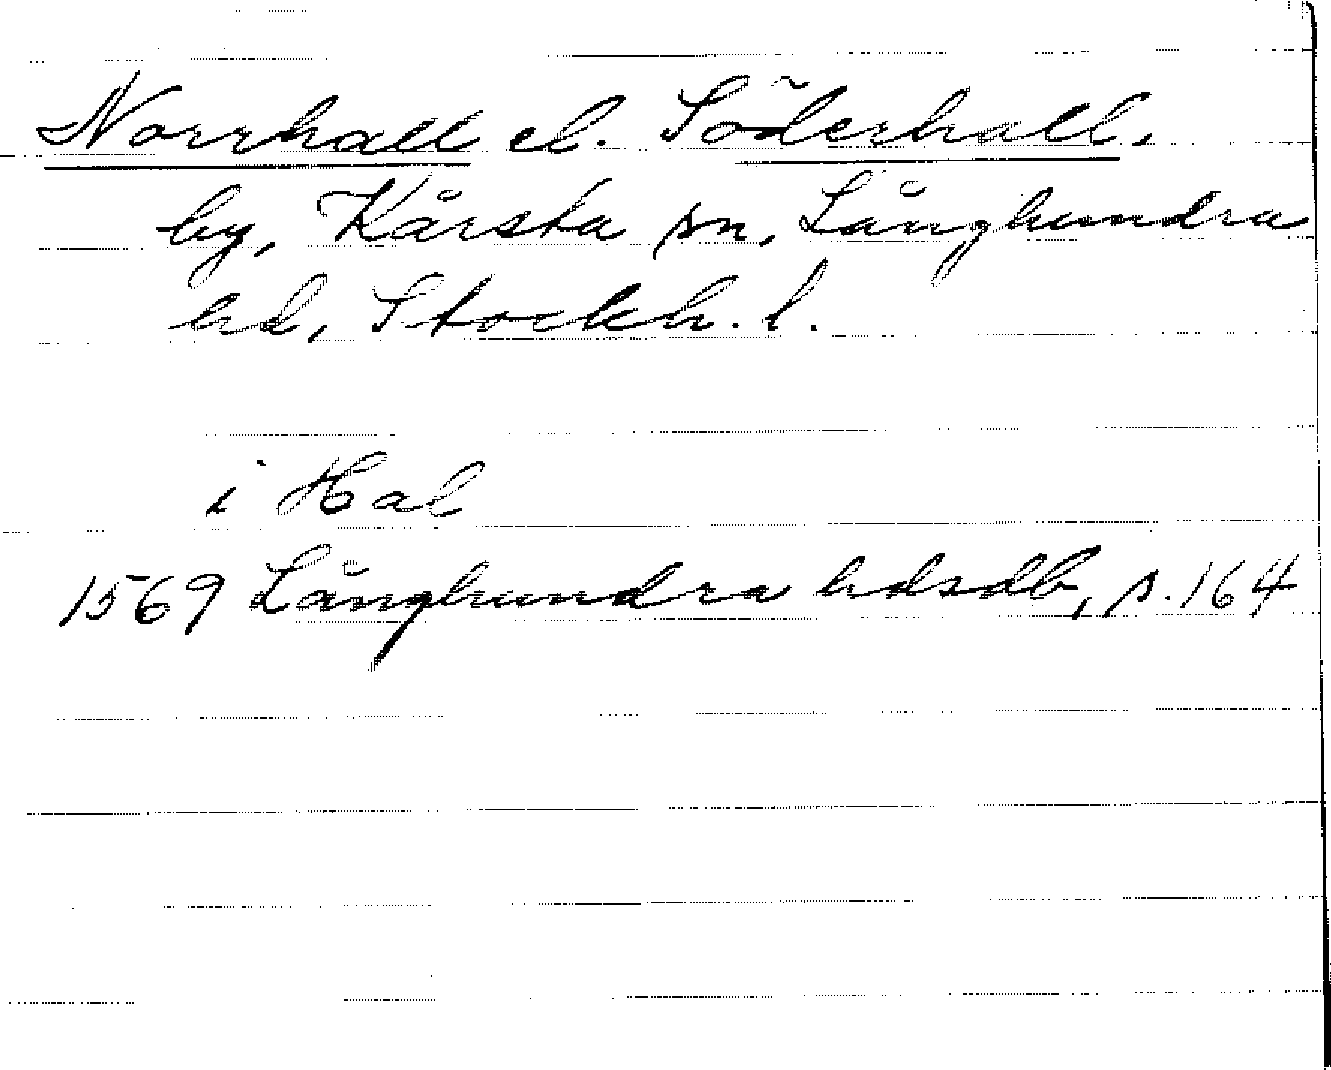 Norrhall el. Söderhall,
by, Kårsta sn, Långhundra
hd, Stockh. l.
i Hal
1569 Långhundra hdsdb, s. 164